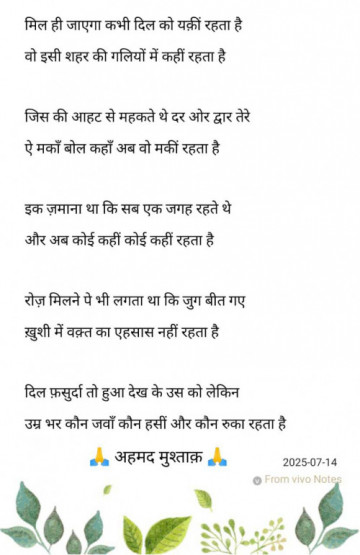 मिल ही जाएगा कभी दिल को यक़ीं रहता है
वो इसी शहर की गलियों में कहीं रहता है
जिस की आहट से महकते थे दर ओर द्वार तेरे
ऐ मकाँ बोल कहाँ अब वो मकीं रहता है
इक ज़माना था कि सब एक जगह रहते थे
और अब कोई कहीं कोई कहीं रहता है
रोज़ मिलने पे भी लगता था कि जुग बीत गए
ख़ुशी में वक़्त का एहसास नहीं रहता है
दिल फ़सुर्दा तो हुआ देख के उस को लेकिन
उम्र भर कौन जवाँ कौन हसीं और कौन रुका रहता है
🙏 अहमद मुश्ताक़ 🙏
2025-07-14
From vivo Notes